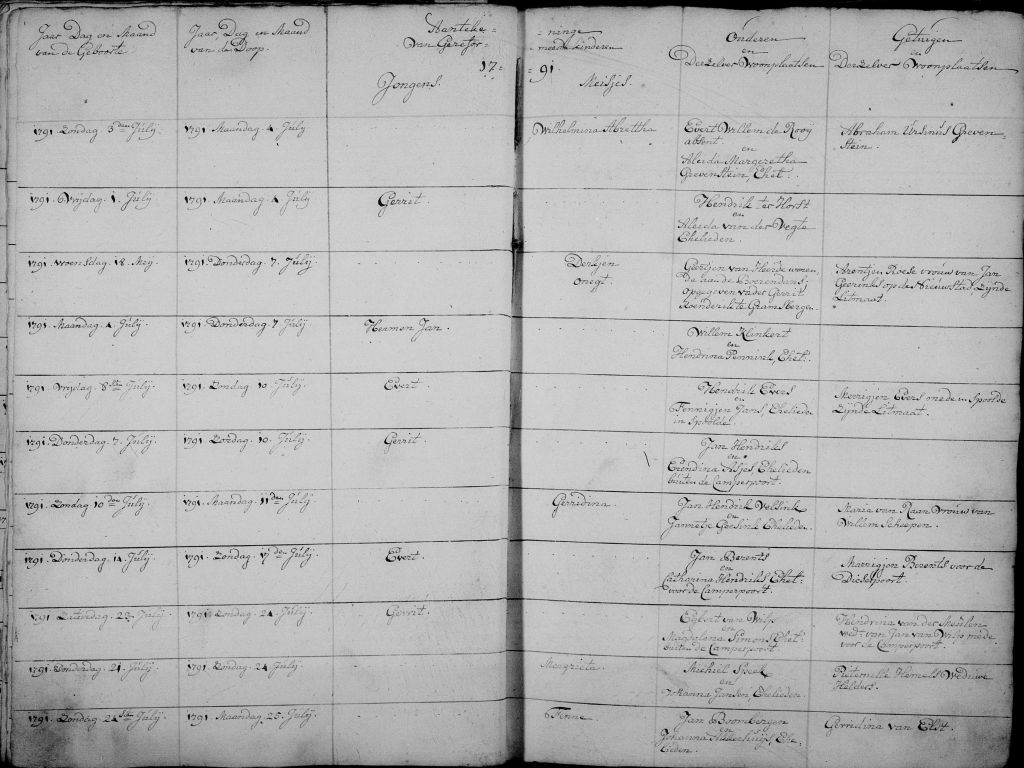 Jaar, Dag en Maand
van de Geboorte.
Jaar, Dag en Maand
van de Doop.
Aanteke-
van Gerefor-
17-
Jongens.
-ninge
meerde kinderen
-91.
Meisjes.
Ouderen
en
Derzelver Woonplaatsen
Getuigen
en
Derzelver Woonplaatsen
1791. Zondag 3den July.
1791. Maandag. 4. July
Wilhelmina
Evert Willem de Rooij
absent.
en
Aleida Margeretha
Grevenstein, Ehel.
Abraham Ursinus Greven-
stein.
1791. Vrijdag. 1. July.
1791. Maandag. 4 July
Gerrit.
Hendrik ter Horst
en
Aleida van der Vegte
Ehelieden.
1791. Woensdag. 18. Mey.
1791. Donderdag. 7. July.
Derkjen
onegt.
Geertjen van Heerde wonen,
opgegeven vader Gerrit
te Gramsbergen.
Arentjen Roese vrouw van Jan
Geerinks op de Nieuwstad, zijnde
Litmaat.
1791. Maandag. 4. July.
1791. Donderdag. 7 July.
Hermen Jan.
Willem Klinkert
en
Hendrina Pennink, Ehel:
1791. Vrijdag. 8ste July.
1791. Zondag 10 July.
Evert.
Hendrik Evers
en
Fennigjen Jans, Eheliede
in Spoolde.
Merrigjen Evers mede in Spoolde
zijnde Litmaat.
1791. Donderdag. 7. July.
1791. Zondag. 10. July.
Gerrit.
Jan Hendriks
en
Ehelieden
buiten de Camperpoort.
1791. Zondag 10den July.
1791. Maandag 11den July.
Gerridina.
Jan Hendrik Velsink
en
Jannetje Geesink Ehelieden.
Maria van Raan vrouw van
Willem Scheepen.
1791. Donderdag. 14. July.
1791. Zondag. 17den July.
Evert.
Jan Berents
en
Catharina Hendriks Ehel:
voor de Camperpoort.
Merrigjen Berents voor de
Dieserpoort.
1791. Zaturdag. 23. July.
1791. Zondag. 24. July.
Gerrit.
Egbert van Wilp
en
Magdalena Simons Ehel:
buiten de Camperpoort.
Hendrina van der Meulen
wed: van Jan van Wilp mede
voor de Camperpoort.
1791. Donderdag. 21. July.
1791. Zondag. 24 July.
Margrieta.
Michiel Speek
en
Jansen, Ehelieden.
Pieternelle Hemels Weduwe
Helders.
1791. Zondag. 24ste July.
1791. Maandag. 25. July.
Fenne.
Jan Boombergen
en
Johanna Ehe-
lieden.
Gerridina van Elst.